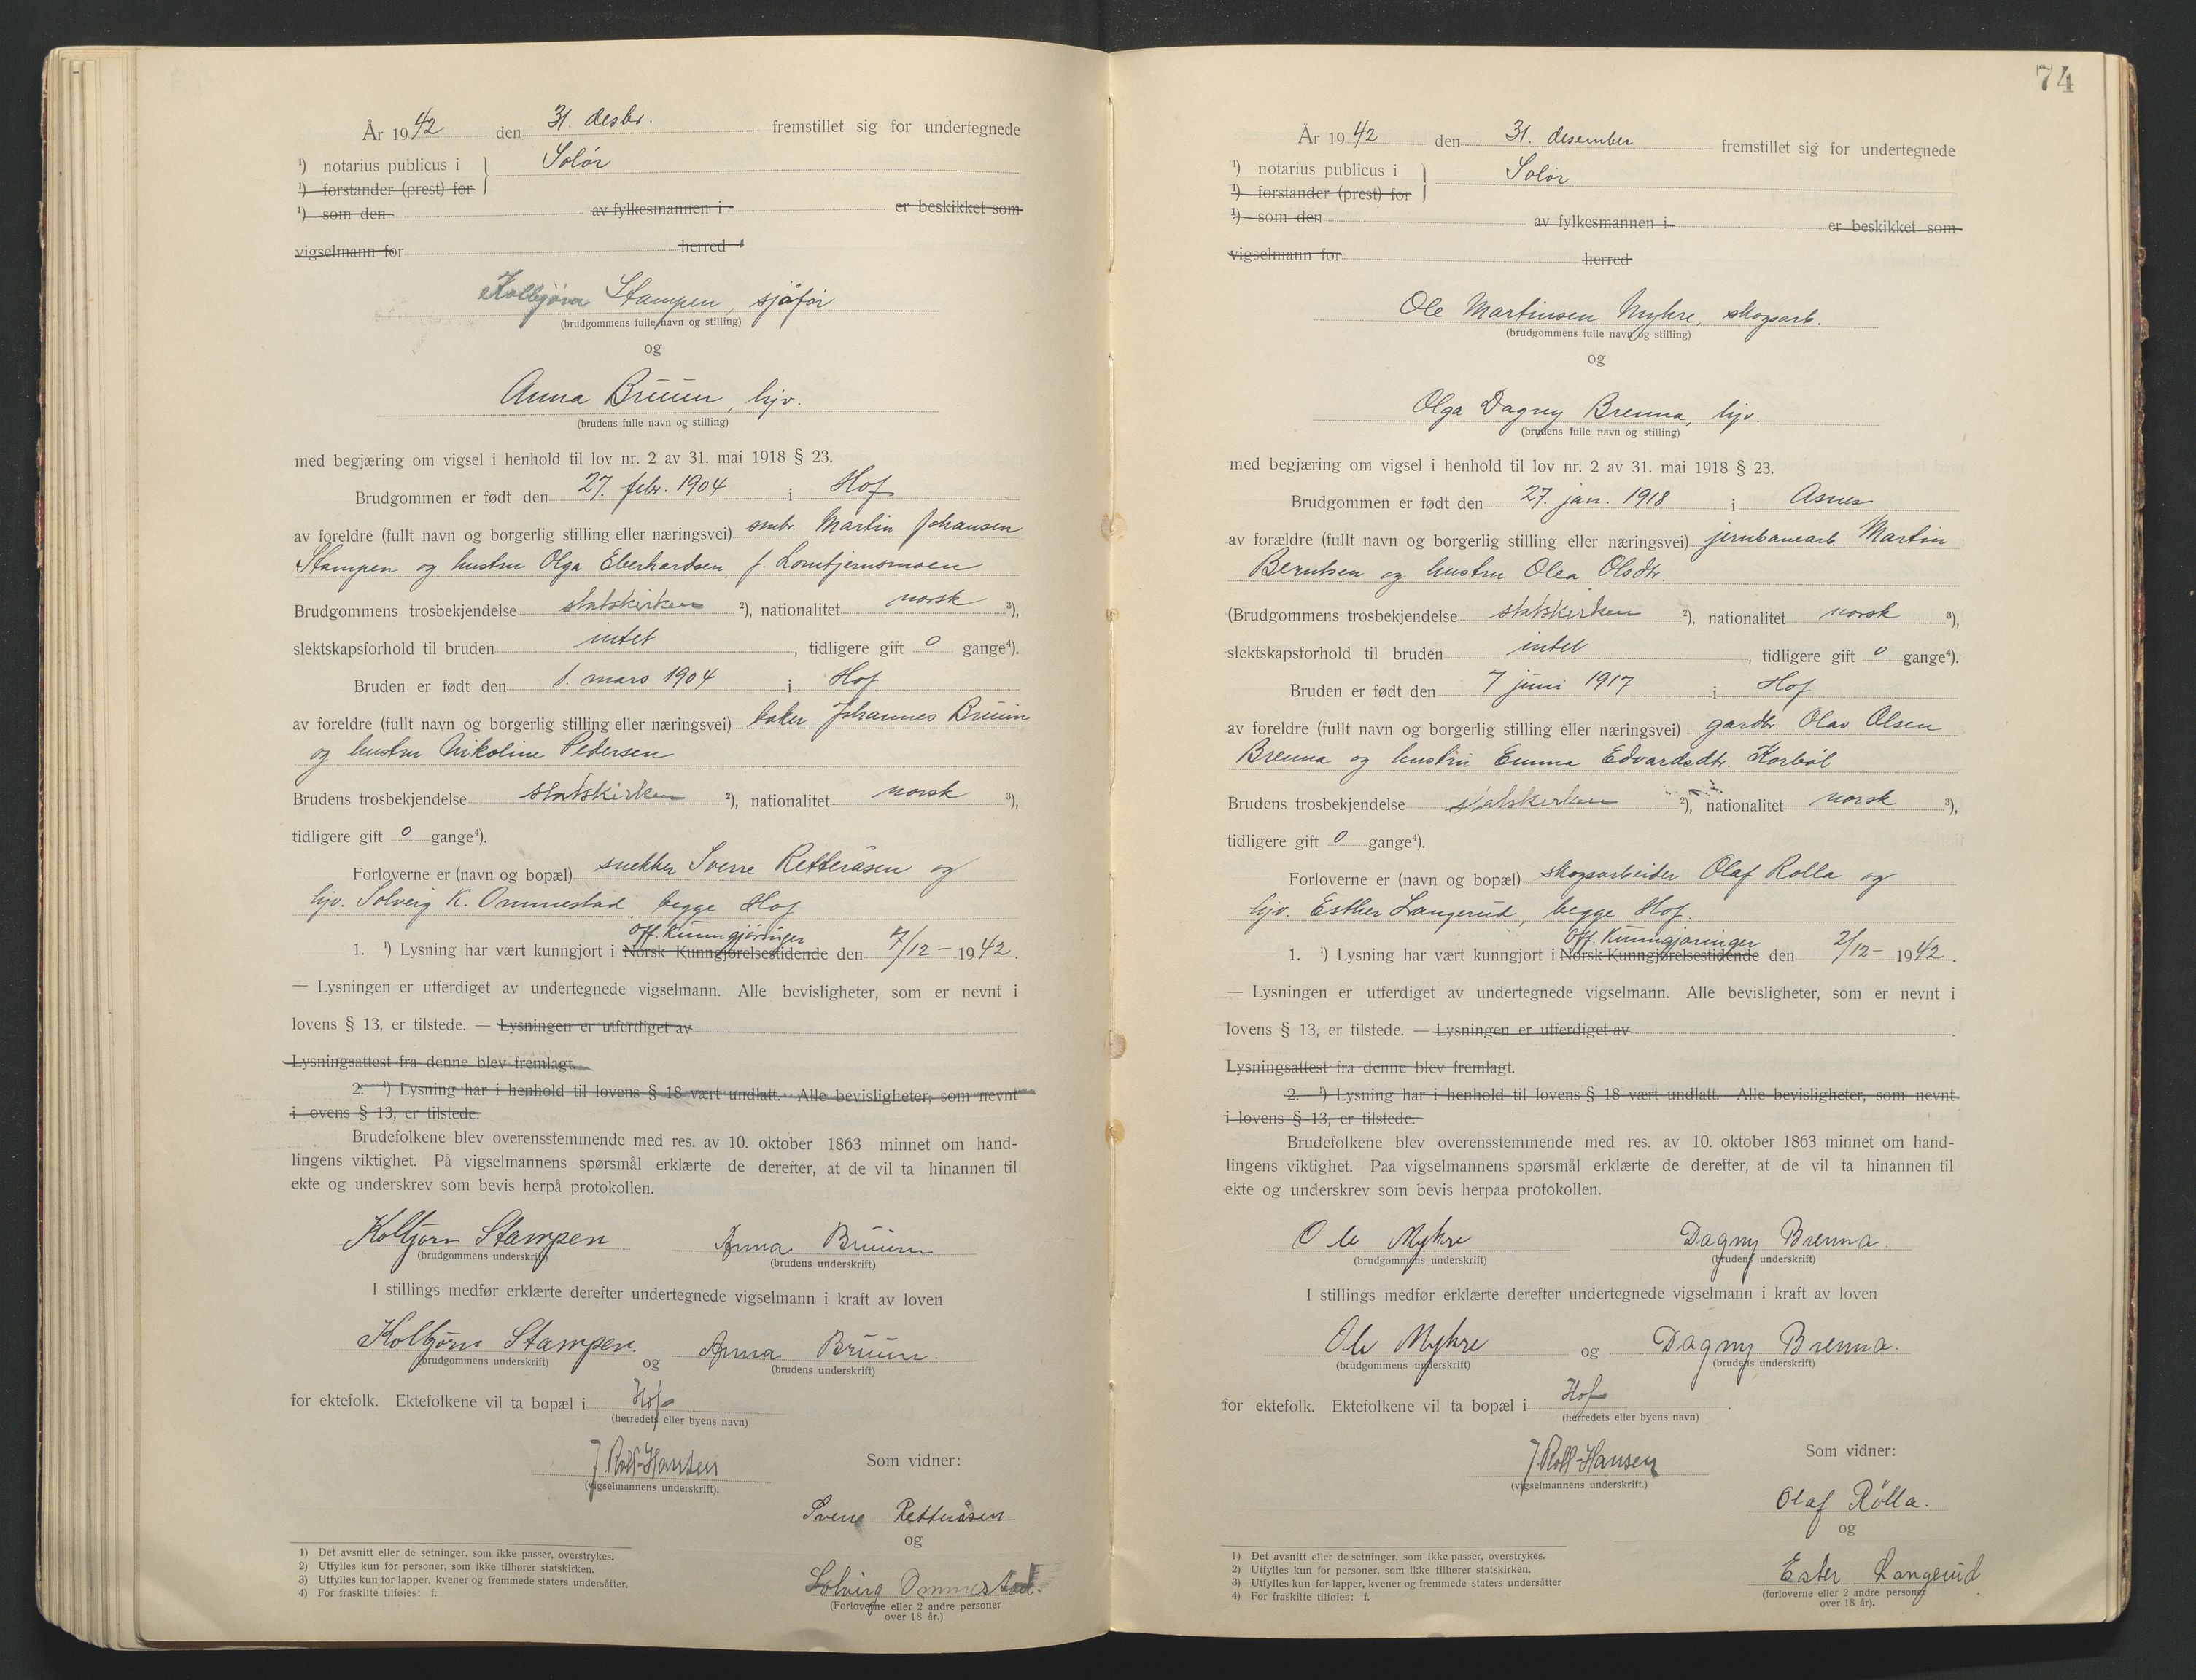 År 1942 den 31. desbr. fremstillet sig for undertegnede
¹) notarius publicus i } Solør
¹) forstander (prest) for
¹) som den av fylkesmannen i er beskikket som
vigselmann for herred
Kolbjørn Stampen, sjåfør
(brudgommens fulle navn og stilling)
og
Anna Bruun, hjv.
(brudens fulle navn og stilling)
med begjæring om vigsel i henhold til lov nr. 2 av 31. mai 1918 § 23.
Brudgommen er født den 27. febr. 1904 i Hof
av foreldre (fullt navn og borgerlig stilling eller næringsvei) smbr. Martin Johansen
Stampen og hustru Olga Eberhardsen, f. Lomtjernsmoen
Brudgommens trosbekjendelse statskirken ²), nationalitet norsk ³),
slektskapsforhold til bruden intet, tidligere gift 0 gange⁴).
Bruden er født den 1. mars 1904 i Hof
av foreldre (fullt navn og borgerlig stilling eller næringsvei) baker Johannes Bruun
og hustru Nikoline Pedersen
Brudens trosbekjendelse statskirken ²), nationalitet norsk ³),
tidligere gift 0 gange⁴).
Forloverne er (navn og bopæl) snekker Sverre Retteråsen og
hjv. Solveig K. Ommestad, begge Hof
Off. Kunngjøringer
1. ¹) Lysning har vært kunngjort i Norsk Kunngjørelsestidende den 7/12 - 1942.
— Lysningen er utferdiget av undertegnede vigselmann. Alle bevisligheter, som er nevnt i
lovens § 13, er tilstede. — Lysningen er utferdiget av
Lysningsattest fra denne blev fremlagt.
2. ¹) Lysning har i henhold til lovens § 18 vært undlatt. Alle bevisligheter, som nevnt
i ovens § 13, er tilstede.
Brudefolkene blev overensstemmende med res. av 10. oktober 1863 minnet om hand-
lingens viktighet. På vigselmannens spørsmål erklærte de derefter, at de vil ta hinannen til
ekte og underskrev som bevis herpå protokollen.
Kolbjørn Stampen Anna Bruun
(brudgommens underskrift) (brudens underskrift)
I stillings medfør erklærte derefter undertegnede vigselmann i kraft av loven
Kolbjørn Stampen. og Anna Bruun.
(brudgommens underskrift) (brudens underskrift)
for ektefolk. Ektefolkene vil ta bopæl i Hof
(herredets eller byens navn)
J. Rolf-Hansen Som vidner:
(vigselmannens underskrift).
Sverre Retteråsen
og
Solveig Ommestad.
(Forloverne eller 2 andre personer
over 18 år.)
1) Det avsnitt eller de setninger, som ikke passer, overstrykes.
2) Utfylles kun for personer, som ikke tilhører statskirken.
3) Utfylles kun for lapper, kvener og fremmede staters undersåtter.
4) For fraskilte tilføies: f.
74
År 1942 den 31. desember fremstillet sig for undertegnede
¹) notarius publicus i } Solør
¹) forstander (prest) for
¹) som den av fylkesmannen i er beskikket som
vigselmann for herred
Ole Martinsen Myhre, skogsarb.
(brudgommens fulle navn og stilling)
og
Olga Dagny Brenna, hjv.
(brudens fulle navn og stilling)
med begjæring om vigsel i henhold til lov nr. 2 av 31. mai 1918 § 23.
Brudgommen er født den 27. jan. 1918 i Åsnes
av forældre (fullt navn og borgerlig stilling eller næringsvei) jernbanearb. Martin
Berntsen og hustru Olea Olsdtr.
(Brudgommens trosbekjendelse statskirken ²), nationalitet norsk ³),
slektskapsforhold til bruden intet, tidligere gift 0 gange⁴).
Bruden er født den 7 juni 1917 i Hof
av foreldre (fullt navn og borgerlig stilling eller næringsvei) gardbr. Olav Olsen
Brenna og hustru Emma Edvardsdtr. Korbøl
Brudens trosbekjendelse statskirken ²), nationalitet norsk ³),
tidligere gift 0 gange⁴).
Forloverne er (navn og bopæl) skogsarbeider Olaf Rolla og
hjv. Esther Langerud, begge Hof.
Off. Kunngjøringer
1. ¹) Lysning har vært kunngjort i Norsk Kunngjørelsestidende den 2/12 - 1942.
— Lysningen er utferdiget av undertegnede vigselmann. Alle bevisligheter, som er nevnt i
lovens § 13, er tilstede. — Lysningen er utferdiget av .
Lysningsattest fra denne blev fremlagt.
2. ¹) Lysning har i henhold til lovens § 18 vært undlatt. Alle bevisligheter, som nevnt
i lovens § 13, er tilstede.
Brudefolkene blev overensstemmende med res. av 10. oktober 1863 minnet om hand-
lingens viktighet. Paa vigselmannens spørsmål erklærte de derefter, at de vil ta hinannen til
ekte og underskrev som bevis herpaa protokollen.
Ole Myhre Dagny Brenna.
(brudgommens underskrift) (brudens underskrift)
I stillings medfør erklærte derefter undertegnede vigselmann i kraft av loven
Ole Myhre og Dagny Brenna.
(brudgommens underskrift) (brudens underskrift)
for ektefolk. Ektefolkene vil ta bopæl i Hof.
(herredets eller byens navn)
J. Rolf-Hansen Som vidner:
(vigselmannens underskrift.)
Olaf Rølla.
og
Ester Langerud
(forloverne eller 2 andre personer
over 18 år).
1) Det avsnitt eller de setninger, som ikke passer, overstrykes.
2) Utfylles kun for personer, som ikke tilhører statskirken.
3) Utfylles kun for lapper, kvener og fremmede staters undersåtter
4) For fraskilte tilføies: f.